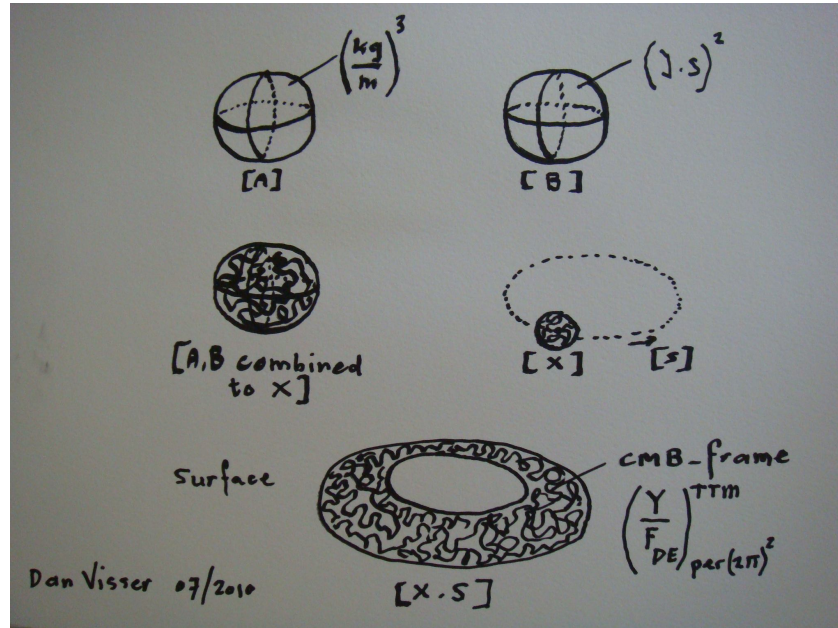 (kg/m)³
(J.S)²
[A]
[B]
[A,B combined
to X]
[X]
[S]
Surface
CMB-frame
(Y/F_DE)^TTM per(2π)²
Dan Visser 07/2010
[X.S]